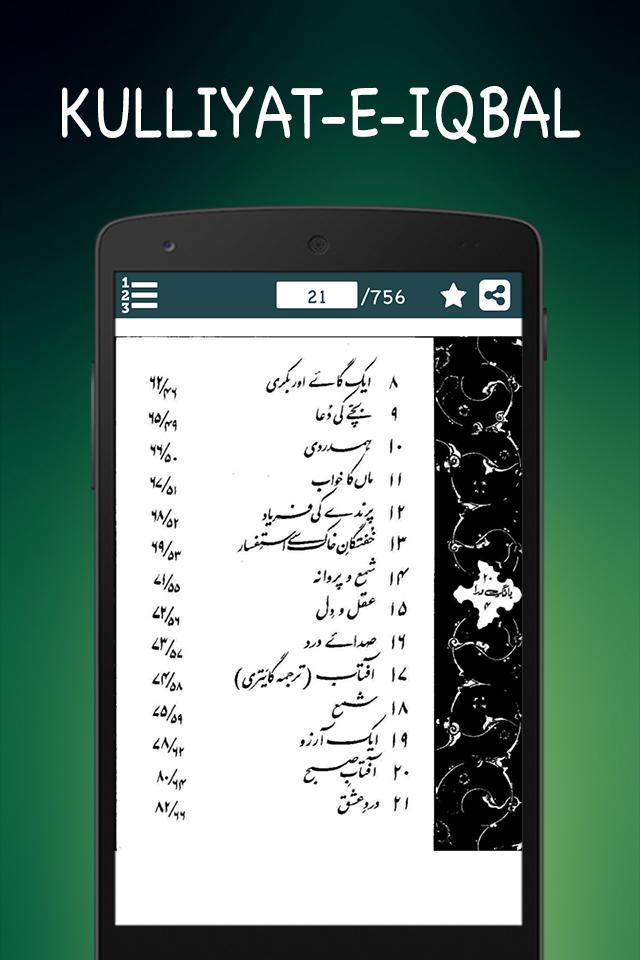 KULLIYAT-E-IQBAL
1
2
3
21 /756
۸ ایک گائے اور بکری ۶۲/۴۶
۹ بچّے کی دُعا ۶۵/۴۹
۱۰ ہمدردی ۶۶/۵۰
۱۱ ماں کا خواب ۶۷/۵۱
۱۲ پرندے کی فریاد ۶۸/۵۲
۱۳ خفتگانِ خاک سے استفسار ۶۹/۵۳
۱۴ شمع و پروانہ ۷۱/۵۵
۱۵ عقل و دِل ۷۲/۵۶
۱۶ صدائے درد ۷۳/۵۷
۱۷ آفتاب (ترجمہ گایتری) ۷۴/۵۸
۱۸ شمع ۷۵/۵۹
۱۹ ایک آرزو ۷۸/۶۲
۲۰ آفتابِ صبح ۸۰/۶۴
۲۱ دردِ عشق ۸۲/۶۶
۲۰
بانگِ درا
۴